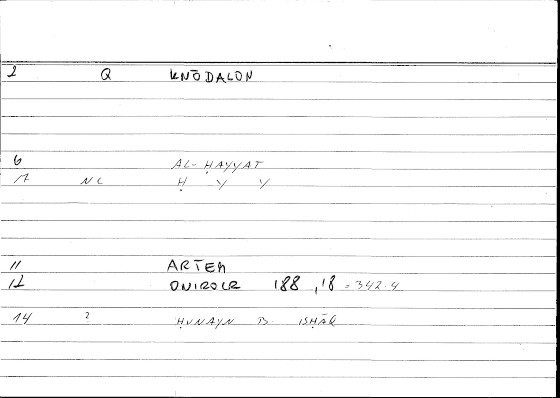 2 Q KNŌDALON
6 AL-ḤAYYAT
17 NC Ḥ Y Y
11 ARTEM
12 ONIROCR 188,18 = 342.4
14 ? ḤUNAYN B. ISḤĀQ